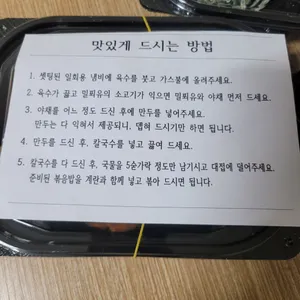 맛있게 드시는 방법
1. 셋팅된 일회용 냄비에 육수를 붓고 가스불에 올려주세요.
2. 육수가 끓고 밀푀유의 소고기가 익으면 밀푀유와 야채 먼저 드세요.
3. 야채를 어느 정도 드신 후에 만두를 넣어주세요.
만두는 다 익혀서 제공되니, 뎁혀 드시기만 하면 됩니다.
4. 만두를 드신 후, 칼국수를 넣고 끓여 드세요.
5. 칼국수를 다 드신 후, 국물을 5숟가락 정도만 남기시고 대접에 덜어주세요.
준비된 볶음밥을 계란과 함께 넣고 볶아 드시면 됩니다.